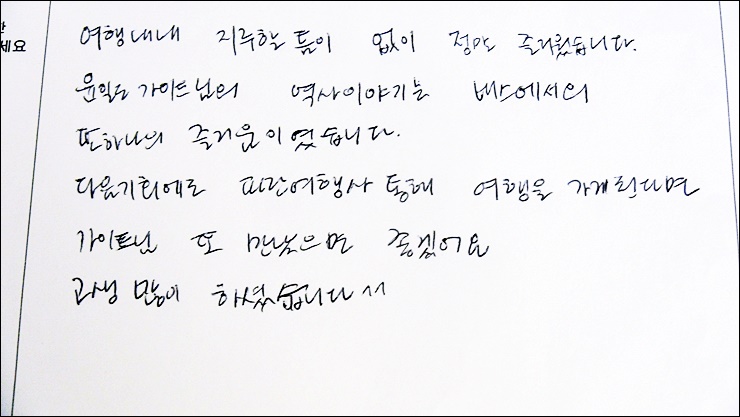 세요
여행내내 지루할 틈이 없이 정말 즐거웠습니다.
가이드님의 역사이야기는 버스에서의
또하나의 즐거움이었습니다.
다음기회에도 파란여행사 통해 여행을 가게된다면
가이드님 또 만났으면 좋겠어요
고생 많이 하셨습니다 ^^